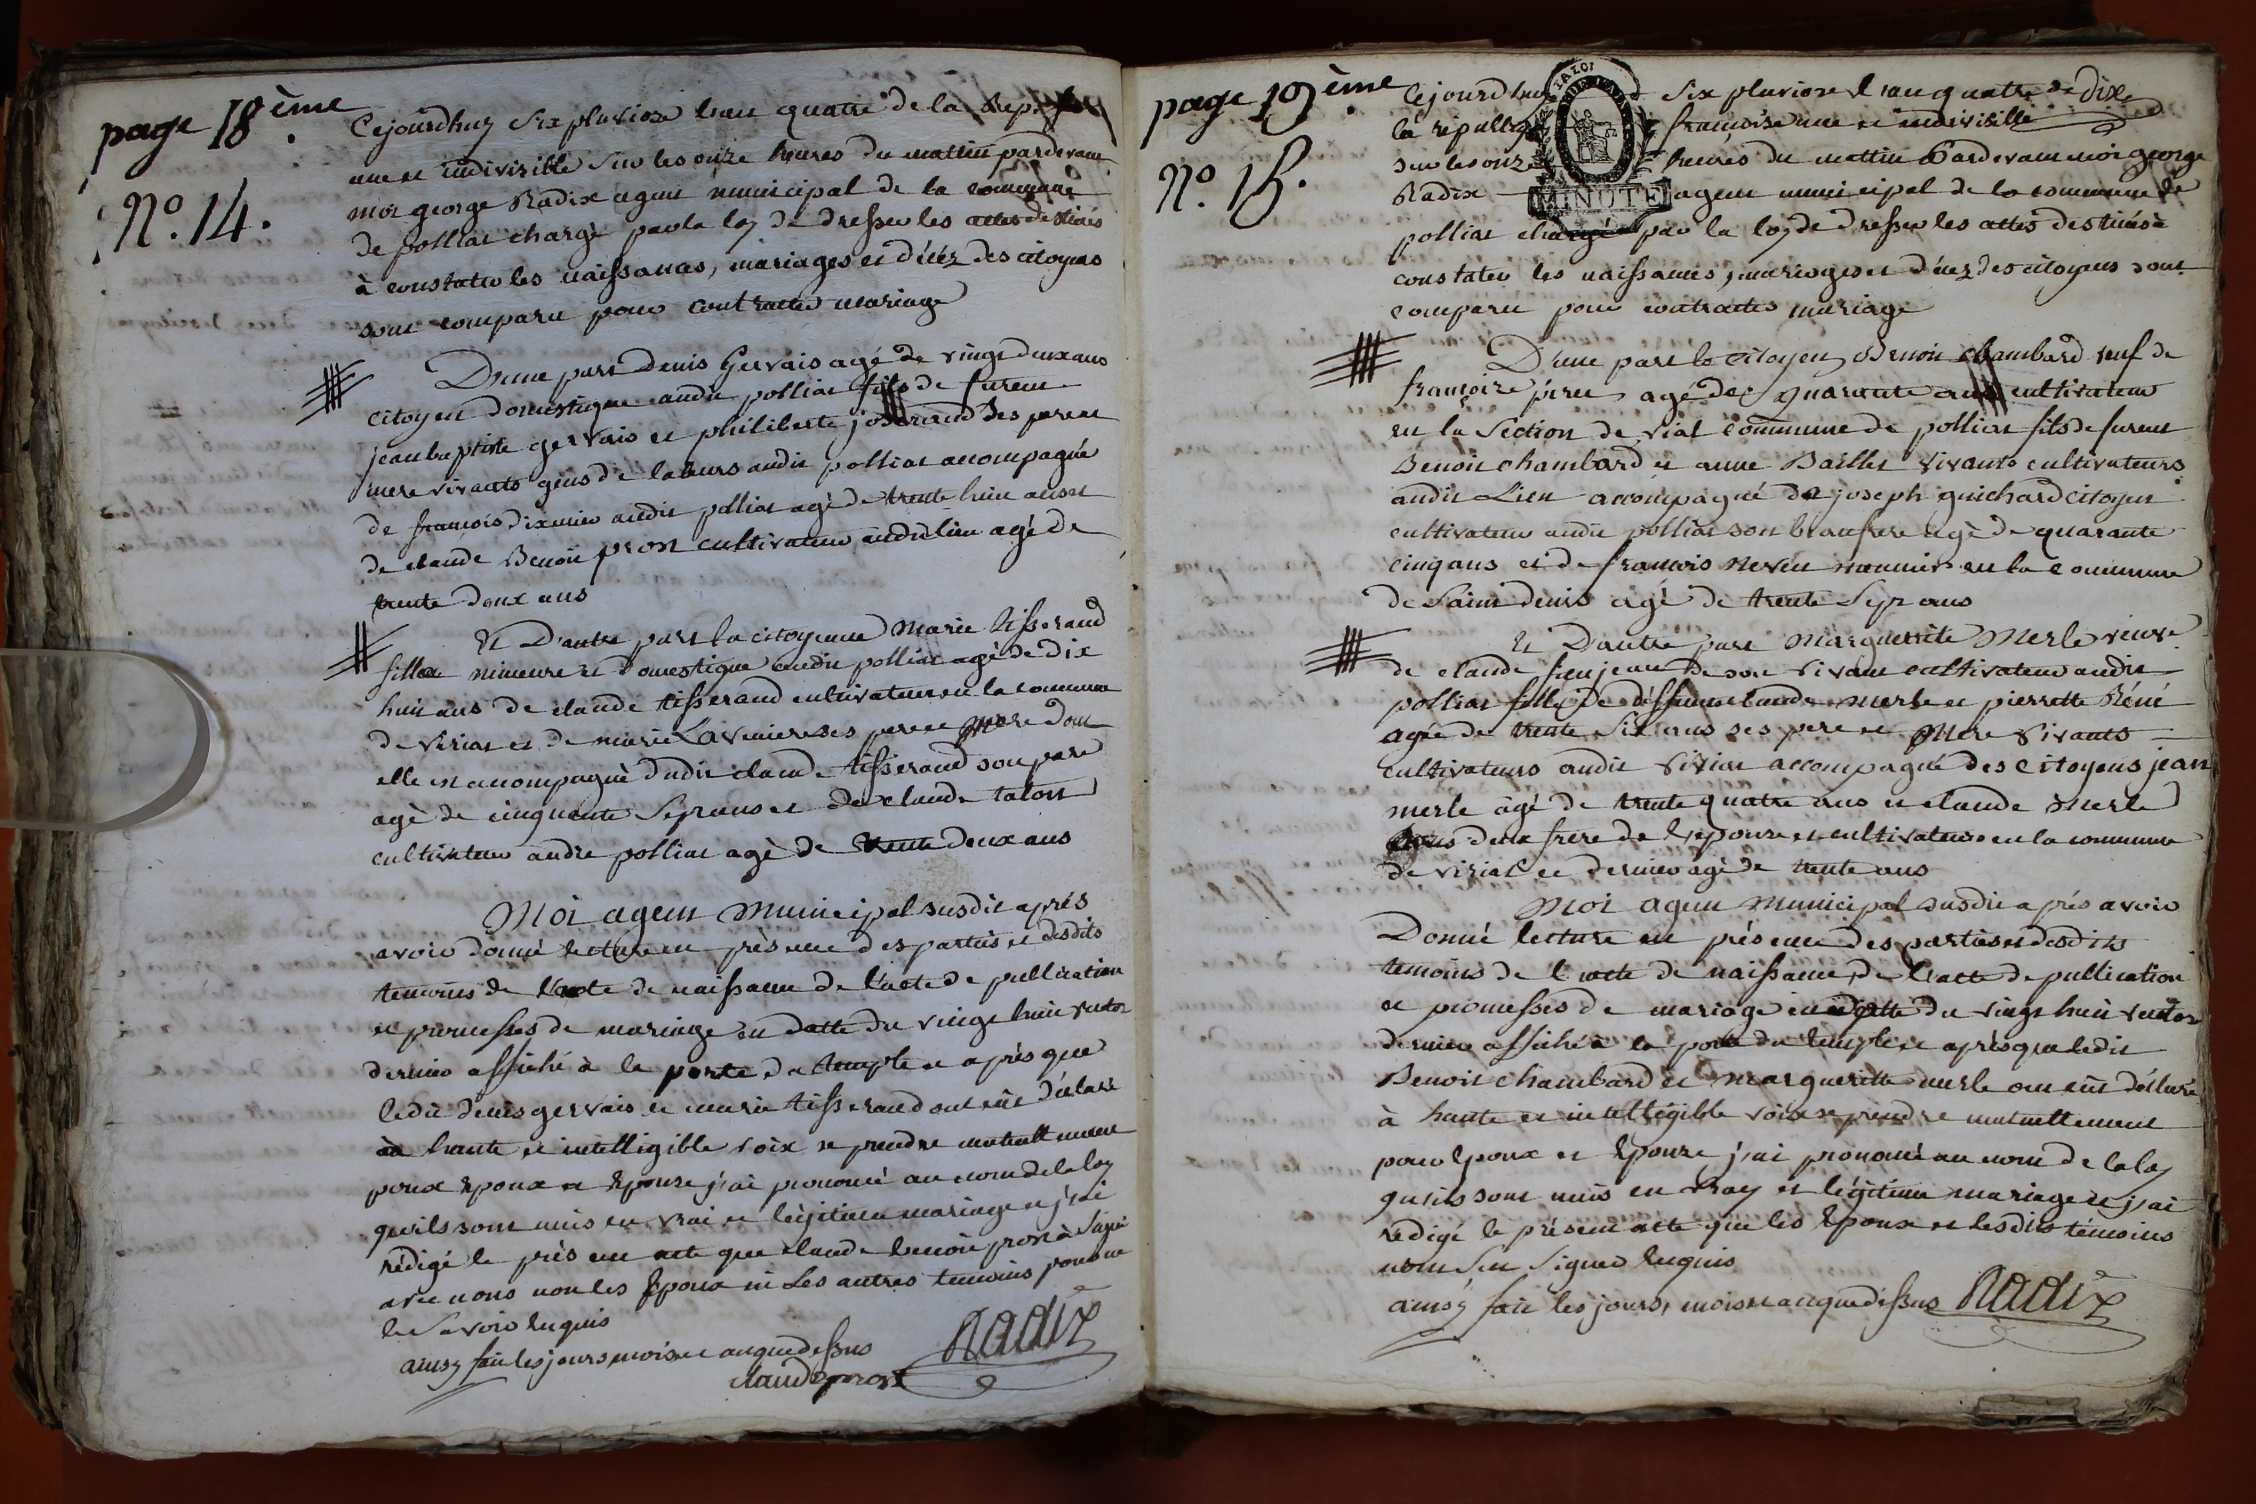 page 18ème
N° 14.
Cejourdhuy six pluviose lan quatre de la Rep.
une et indivisible sur les onze heures du mattin pardevant
moi george Radix agent municipal de la commune
de polliat chargé par la loy de dresser les actes destinés
à constater les naissances, mariages et décéz des citoyens
sont comparu pour contracter mariage
D'une part Denis Gervais agé de vingt deux ans
citoyen domestique audit polliat fils de furent
jean baptiste gervais et philiberte josserand ses pere et
mere vivants gens de labeurs audit polliat acompagné
de françois dixmier audit polliat agé de trente huit ans et
de claude Benoit pron cultivateur audit lieu agé de
trente deux ans
Et D'autre part la citoyenne Marie tisserand
fille mineure et domestique audit polliat agé de dix
huit ans de claude tisserand cultivateur en la commune
de viriat et de marie Laveniere ses pere et mere dont
elle est acompagné dudit claude tisserand son pere
agé de cinquante sept ans et de claude talon
cultivateur audit polliat agé de trente deux ans
Moi agent Municipal susdit après
avoir donné lecture en présence des parties et desdits
temoins de l'acte de naissance de l'acte de publication
et promesses de mariage en datte du vingt huit
dernier affiché à la porte du temple et après que
ledit denis gervais et marie tisserand ont eût déclaré
à haute et intelligible voix se prendre mutuellement
pour epoux et epouse j'ai prononcé au nom de la loy
qu'ils sont unis en vrai et légitime mariage et j'ai
rédigé le présent acte que claude benoit pron à signé
avec nous non les Epoux ni les autres temoins pour ne
le savoir enquis
ainsy fait les jours mois et an que dessus
Radix
claude pron
page 19ème
N°. 15.
Cejourdhuy six pluviose l'an quatre de
la républi françoise une et indivisible
sur les onze heures du mattin Pardevant moi george
Radix agent municipal de la commune de
MINUTE
polliat chargé par la loy de dresser les actes destinés à
constater les naissances, mariages et décéz des citoyens sont
comparu pour contracter mariage
D'une part le citoyen Benoit chambard veuf de
françoise agé de quarante ans cultivateur
en la Section de vial commune de polliat fils de furent
Benoit chambard et anne Baillet vivants cultivateurs
audit Lieu accompagné de joseph guichard citoyen
cultivateur audit polliat son beaufrere agé de quarante
cinq ans et de françois meunier en la commune
de Saint denis agé de trente sept ans
Et D'autre part Marguerite Merle veuve
de claude de son vivant cultivateur audit
polliat fille de deffunt claude merle et pierrette Réné
agée de trente six ans ses pere et mere vivants
cultivateurs audit viriat accompagné des citoyens jean
merle âgé de trente quatre ans et claude Merle
deux frere de l'epouse et cultivateurs en la commune
de viriat ce dernier agé de trente ans
Moi agent Municipal susdit après avoir
Donné lecture en présence des parties et desdits
temoins de l'acte de naissance, de l'acte de publication
et promesses de mariage en datte du vingt huit
dernier affiché à la porte du temple et après que ledit
Benoit chambard et marguerite merle ont eût déclaré
à haute et intelligible voix se prendre mutuellement
pour epoux et Epouse j'ai prononcé au nom de la loy
qu'ils sont unis en vray et légitime mariage et j'ai
rédigé le présent acte que les Epoux et lesdits témoins
nont Seu signer Enquis
ainsy fait les jours, mois et an que dessus Radix